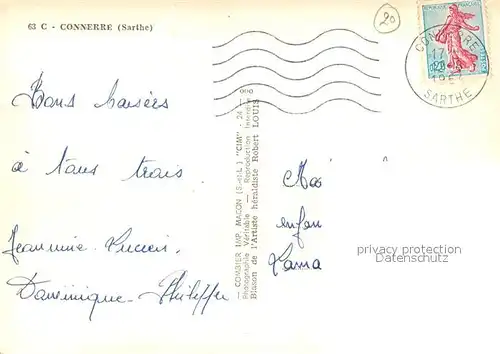 63 C - CONNERRE (Sarthe)
20
CONNERRE
17
SARTHE
Bons baisers
à tous trois
Jeannine. Lucien.
Dominique - Philippe
— COMBIER IMP. MACON (S.-et-L.) "CIM" - 24 - 000
Photographie Véritable — Reproduction Interdite
Blason de l'Artiste héraldiste Robert LOUIS
privacy protection
Datenschutz